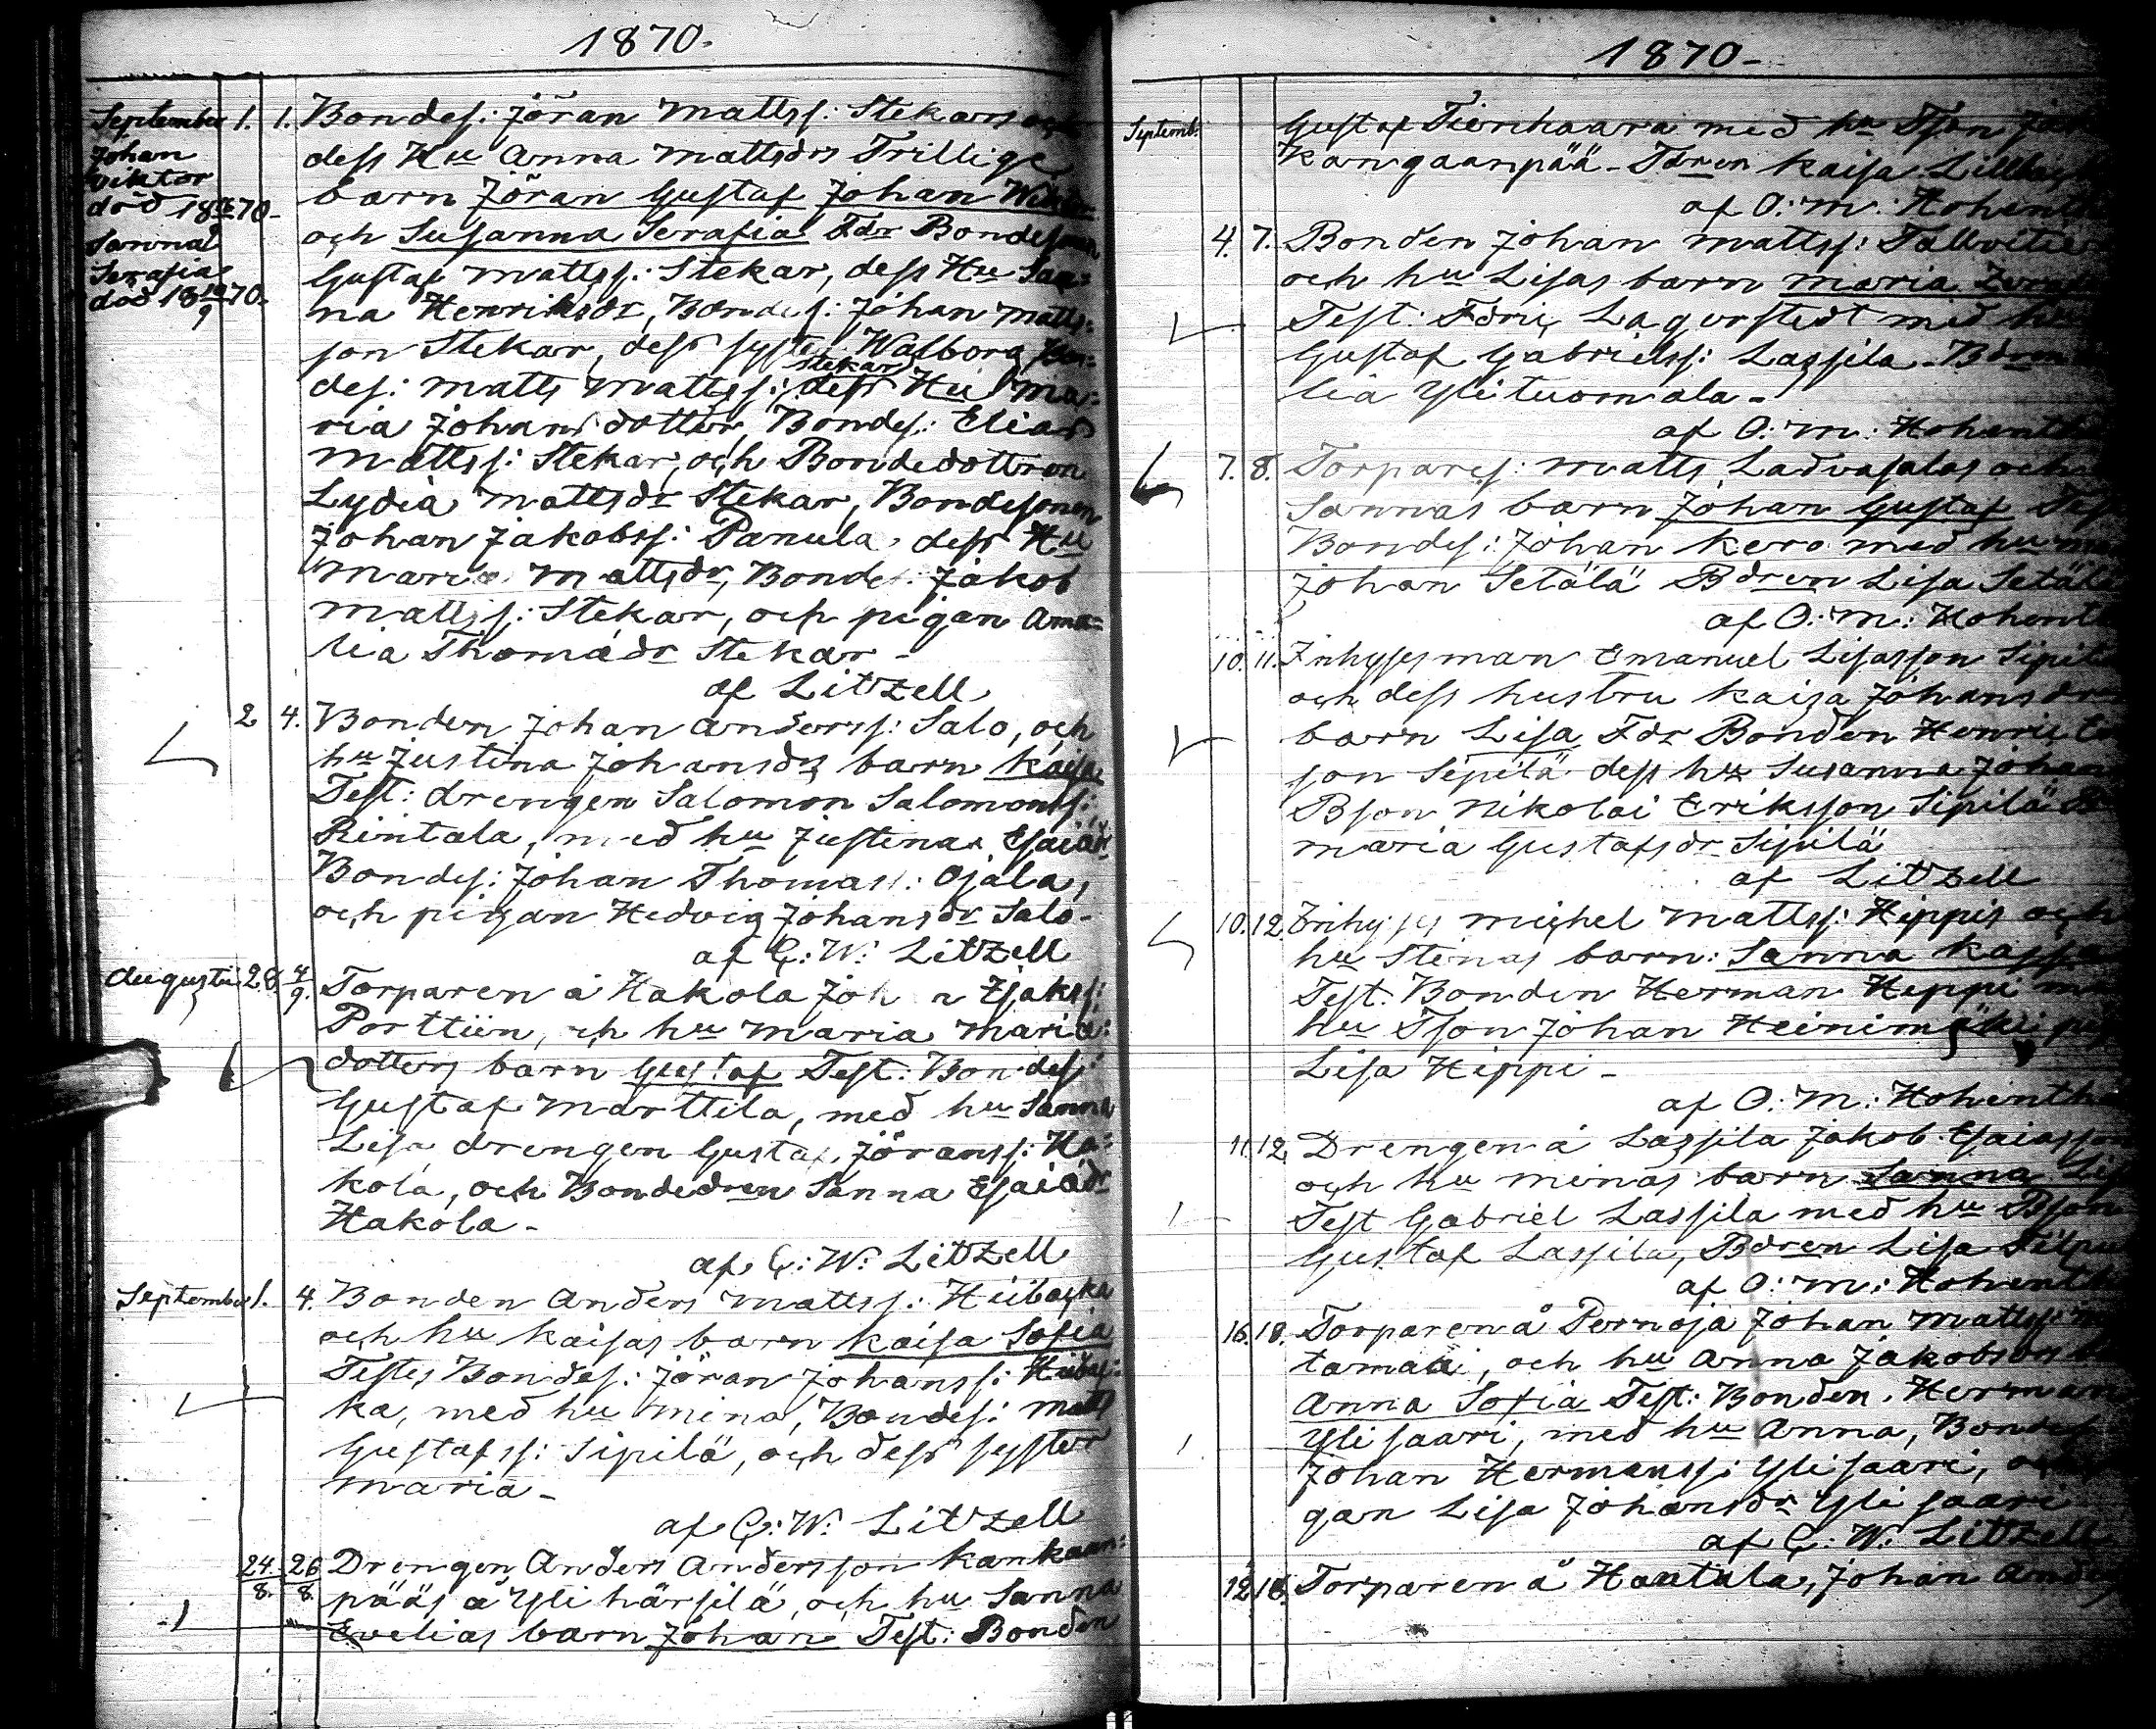 1870.
September 1. 1. Bondes: Jöran Mattss: Stekars och
Johan dess Hu Anna Mattsdrs Trillige
Viktor barn Jöran Gustaf Johan Wiktor
död 18 70- och Susanna Serafia Fdr Bondesonen
Sanna Gustaf Mattss: Stekar, dess Hu San=
Serafia na Henriksdr, Bondes: Johan Matts:
död 18 10/9 70- son Stekar, dess syster Walborg, Bon=
des: Matts Mattss: Stekar, dess Hu Ma=
ria Johansdotter, Bondes: Elias
Mattss: Stekar, och Bondedottren
Lydia Mattsdr Stekar, Bondesonen
Johan Jakobss: Panula, dess Hu
Maria Mattsdr, Bondes: Jakob
Mattss: Stekar, och pigan Ama=
lia Thomasdr Stekar -
af Litzell
2 4. Bonden Johan Anderss: Salo, och
hu Justina Johansdrs barn Kaisa
Test: drengen Salomon Salomonss:
Rintala, med hu Justina Esaiædr
Bondes: Johan Thomass: Ojala,
och pigan Hedvig Johansdr Salo-
af G: W: Litzell
Augusti 28. 4/9. Torparen å Hakola Joh n Isakss:
Porttiin, och hu Maria Maria:
dotters barn Gustaf Test: Bondes:
Gustaf Marttila, med hu Sanna
Lisa drengen Gustaf Jöranss: Ha=
kola, och Bondedren Sanna Esaiædr
Hakola-
af G: W: Litzell
September 1. 4. Bonden Anders Mattss: Hiibacka
och hu Kaisas barn Kaisa Sofia
Testes Bondes: Jöran Johanss: Hiibac:
ka, med hu Mina, Bondes: Matts
Gustafss: Sipilä, och dess syster
Maria-
af G: W: Litzell
24/8. 26/8. Drengen Anders Andersson Kankaan:
pääs å Yli härsilä, och hu Sanna
Evelias barn Johan Test: Bonden
1870-
Septemb. Gustaf Tienhaara med hu Tson
Kangaanpää- Tdren Kaisa
af O: M: Hohenth
4. 7. Bonden Johan Mattss: Talvitie
och hu Lisas barn Maria
Test: Fdric Lagerstedt med hu
Gustaf Gabrielss: Lassila- Bdren
lia Ylituomala-
af O: M: Hohenth
7. 8. Torpares: Matts Ladvasalas och
Sannas barn Johan Gustaf Test
Bondes: Johan Kero med hu
Johan Setälä Bdren Lisa Setälä
af O: M: Hohenth
10. 11. Inhysesman Emanuel Lisasson Sipilä
och dess hustru Kaisa Johansdr
barn Lisa Fdr Bonden Henric
son Sipilä dess hu Susanna Johan
Bson Nikolai Eriksson Sipilä
Maria Gustafsdr Sipilä
af Litzell
10. 12. Inhyses Michel Mattss: Hippis och
hu Stinas barn: Sanna Kajsa
Test. Bonden Herman Hippi
hu Tson Johan Heinimäki
Lisa Hippi-
af O: M: Hohenth
11. 12 Drengen å Lassila Jakob Esaiasson
och hu Minas barn Sanna Lis
Test Gabriel Lassila med hu Bson
Gustaf Lassila, Bdren Lisa
af O: M: Hohenth
16. 18. Torparen å Pernaja Johan Mattss:
tamäki, och hu Anna Jakobs
Anna Sofia Test: Bonden Herman
Ylisaari, med hu Anna, Bondes
Johan Hermanss: Ylisaari,
gan Lisa Johansdr Ylisaari
af G: W: Litzell
12. 18. Torparen å Hautala, Johan Anders